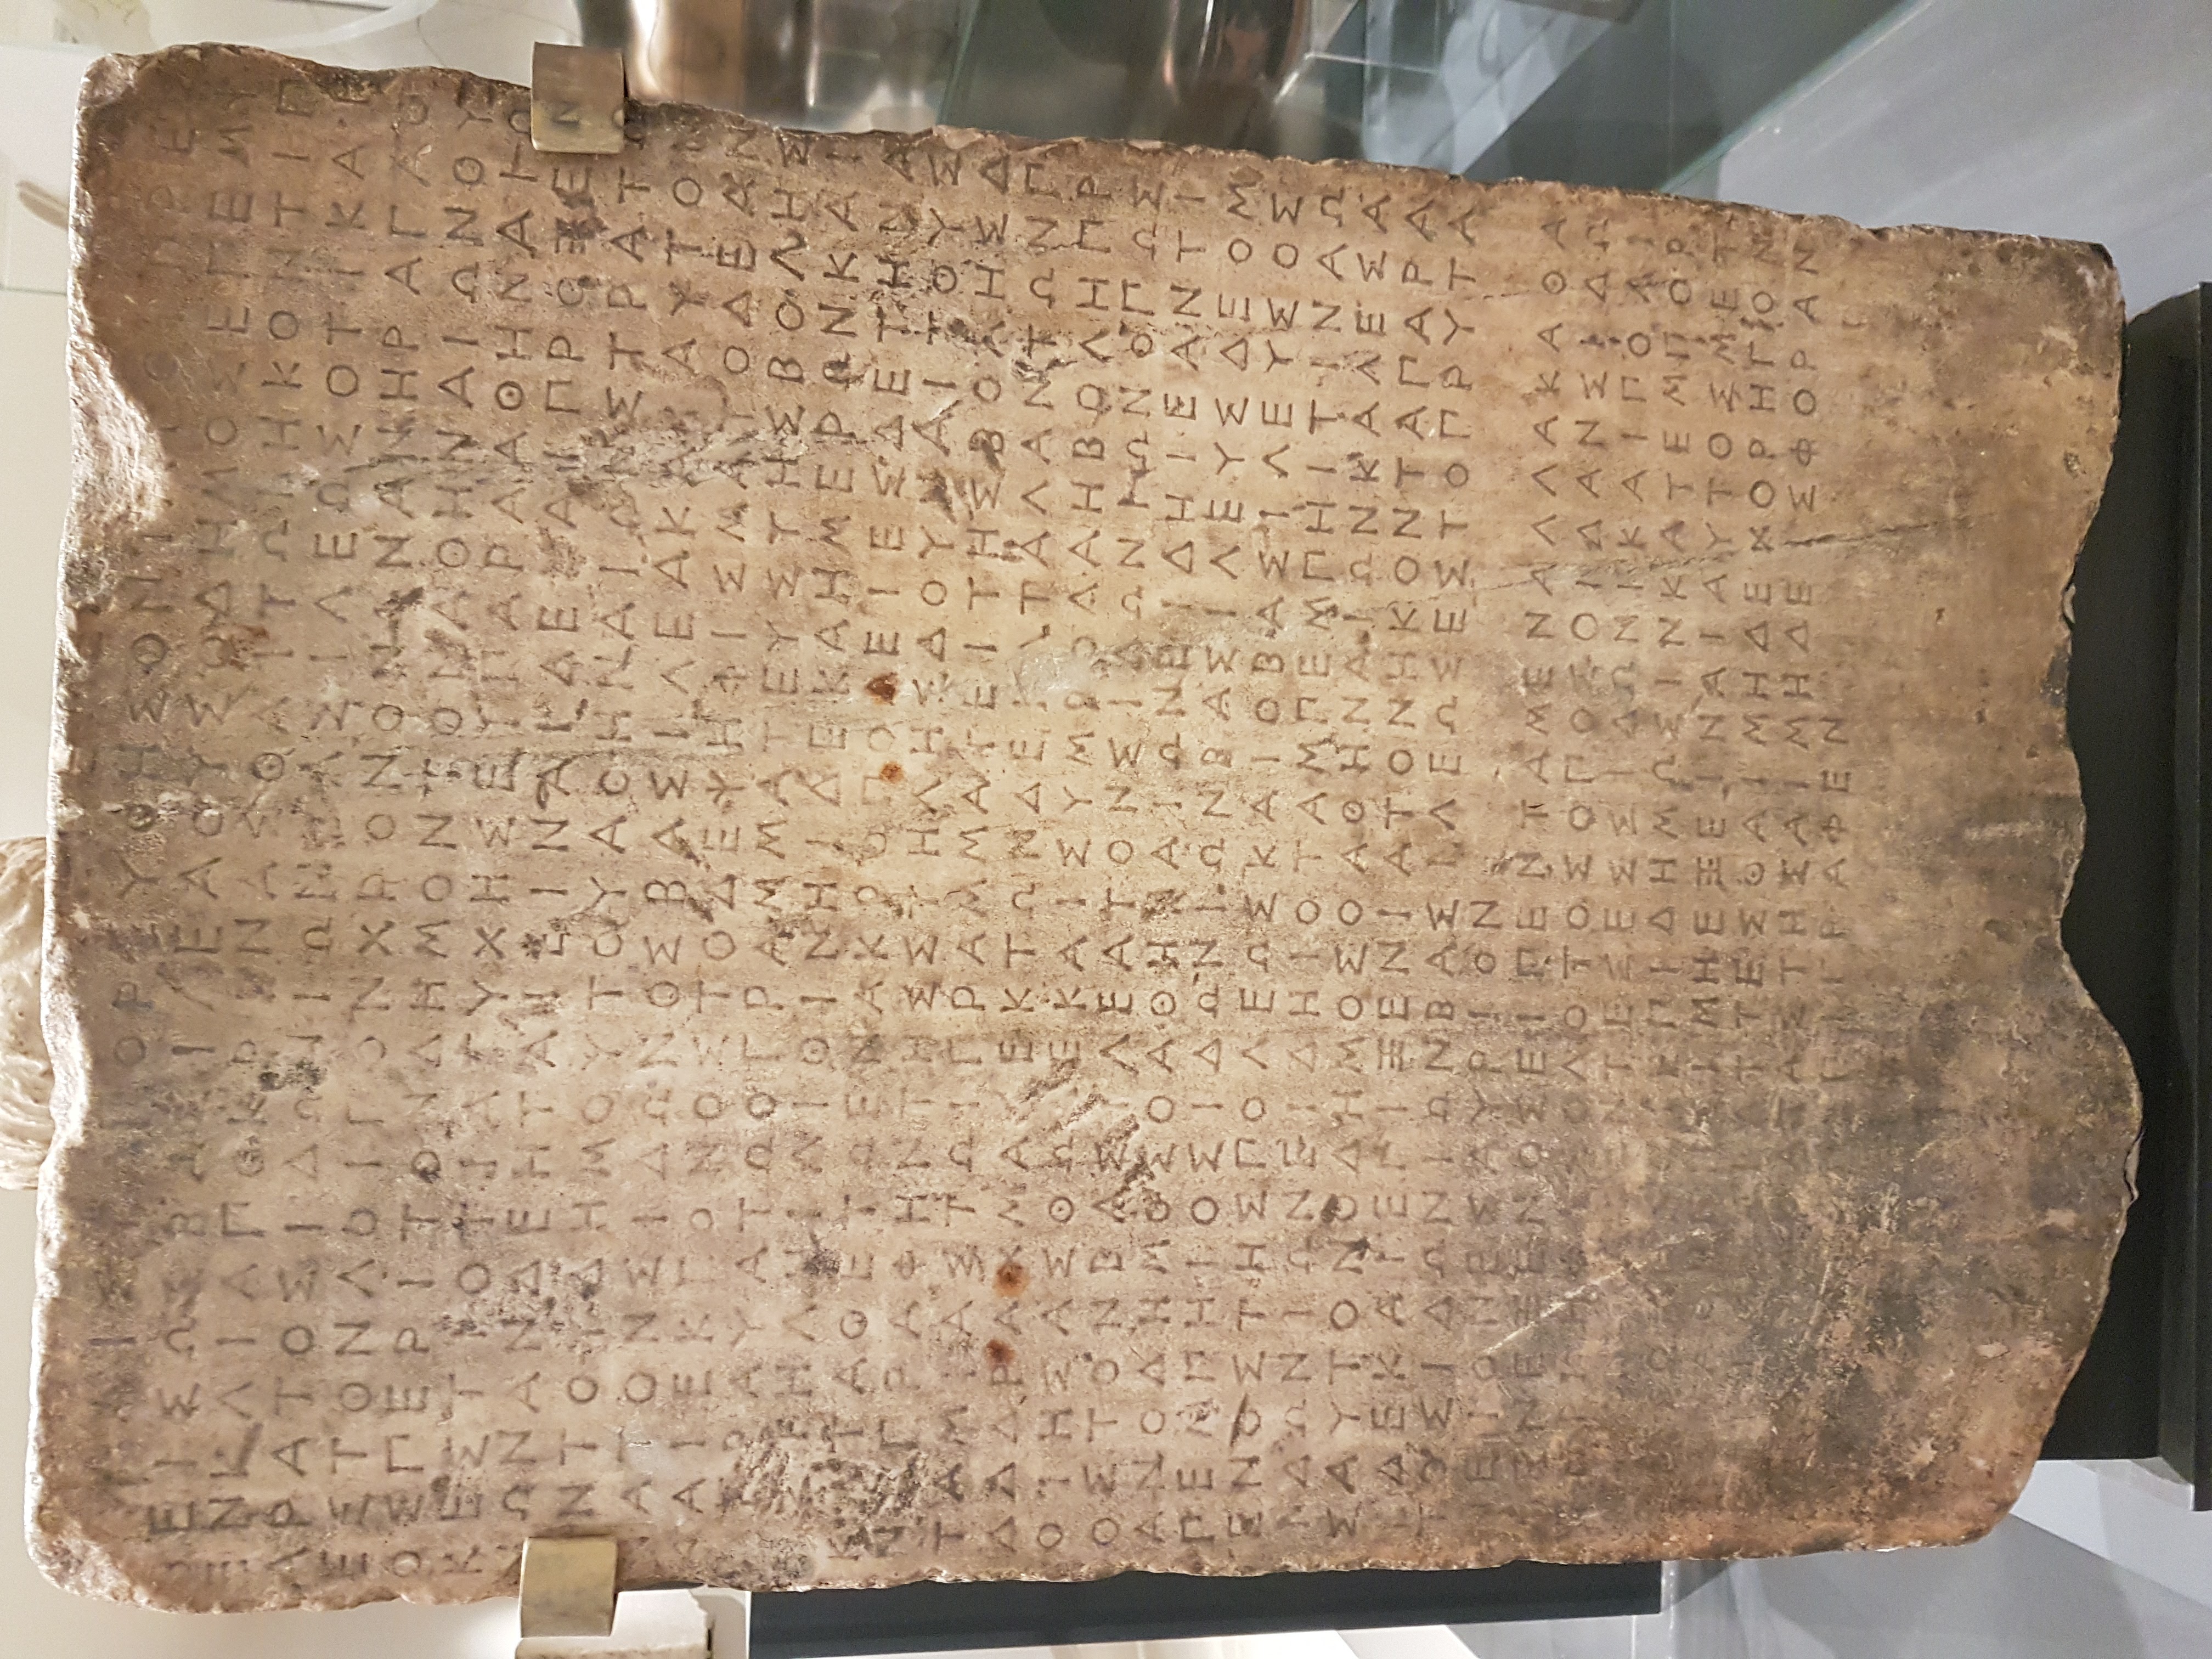 ΛΙΣΤΑΠΟΡΕΥΘΗΣΟΝΤΑΙΟΙΠΡΕΣ
ΒΕΙΣΩΣΒΑΣΙΛΕΑΟΥΣΟΔΗΜΟΣΕΠΕΜΨ
ΕΝΚΑΙΑΠΟΚΡΙΝΑΣΘΑΙΤΩΙΗΚΟΝΤΙΠ
ΑΡΑΤΟΣΙΔΩΝΙΩΝΒΑΣΙΛΕΩΣΟΤΙΚΑΙ
ΕΣΤΟΝΛΟΙΠΟΝΧΡΟΝΟΝΩΝΑΝΗΡΑΓΑΘ
ΟΣΠΕΡΙΤΟΝΔΗΜΟΝΤΟΝΑΘΗΝΑΙΩΝΟΥ
ΚΕΣΤΙΟΤΙΑΤΥΧΗΣΕΙΠΑΡΑΑΘΗΝΑΙΩ
ΝΩΝΑΝΔΕΗΤΑΙΕΙΝΑΙΔΕΚΑΙΠΡΟΞΕΝ
ΟΝΤΟΥΔΗΜΟΥΤΟΥΑΘΗΝΑΙΩΝΣΤΡΑΤΩ
ΝΑΤΟΝΣΙΔΩΝΟΣΒΑΣΙΛΕΑΚΑΙΑΥΤΟΝ
ΚΑΙΕΚΓΟΝΟΣΤΟΔΕΨΗΦΙΣΜΑΤΟΔΕΑΝ
ΑΓΡΑΨΑΤΩΟΓΡΑΜΜΑΤΕΥΣΤΗΣΒΟΛΗΣ
ΕΣΤΗΛΗΙΛΙΘΙΝΗΙΔΕΚΑΗΜΕΡΩΝΚΑΙ
ΚΑΤΑΘΕΤΩΕΝΑΚΡΟΠΟΛΕΙΕΣΔΕΤΗΝΑ
ΝΑΓΡΑΦΗΝΤΗΣΣΤΗΛΗΣΔΟΥΝΑΙΤΟΥΣ
ΤΑΜΙΑΣΤΩΙΓΡΑΜΜΑΤΕΙΤΗΣΒΟΛΗΣΔ
ΔΔΔΡΑΧΜΑΣΕΚΤΩΝΔΕΚΑΤΑΛΑΝΤΩΝΠ
ΟΙΗΣΑΣΘΩΔΕΚΑΙΣΥΜΒΟΛΑΗΒΟΛΗΠΡ
ΟΣΤΟΝΒΑΣΙΛΕΑΤΟΝΣΙΔΩΝΙΩΝΟΠΩΣ
ΑΝΟΔΗΜΟΣΟΑΘΗΝΑΙΩΝΕΙΔΗΙΕΑΝΤΙ
ΠΕΜΠΗΙΟΣΙΔΩΝΙΩΝΒΑΣΙΛΕΥΣΔΕΟΜ
ΕΝΟΣΤΗΣΠΟΛΕΩΣΚΑΙΟΒΑΣΙΛΕΥΣΟΣ
ΙΔΩΝΙΩΝΕΙΔΗΙΟΤΑΜΠΕΜΠΗΙΤΙΝΑΩ
ΣΑΥΤΟΝΟΔΗΜΟΣΟΑΘΗΝΑΙΩΝΚΑΛΕΣΑ
ΙΔΕΚΑΙΕΠΙΞΕΝΙΑΤΟΝΗΚΟΝΤΑΠΑΡΑ
ΤΟΣΙΔΩΝΙΩΝΒΑΣΙΛΕΩΣΕΣΤΟΠΡΥΤΑ
ΝΕΙΟΝΕΣΑΥΡΙΟΝ
ΜΕΝΕΞΕΝΟΣΕΙΠΕΝΤΑΜΕΝΑΛΛΑΚΑΘΑ
ΠΕΡΚΗΦΙΣΟΔΟΤΟΣΟΠΟΣΟΙΔΑΝΣΙΔΩ
ΝΤΕΣΕΣΣΙΔΩΝΙΚΑΙΠΟΛΙ
ΕΠΙΔΗΜΩΣΙΝΚΑΤΕΜΠΟΡ
ΙΜΗΕΞΕΙΝΑΙΑΥΤΟΣΜΕΤ
ΑΤΤΕΣΘΑΙΜΗΔΕΧΟΡΗΓΟΝ
ΑΤΑΣΤΗΣΑΙΜΗΔΕΙΣΦΟΡΑΝ
ΕΠΙΓΡΑΦΕΝ